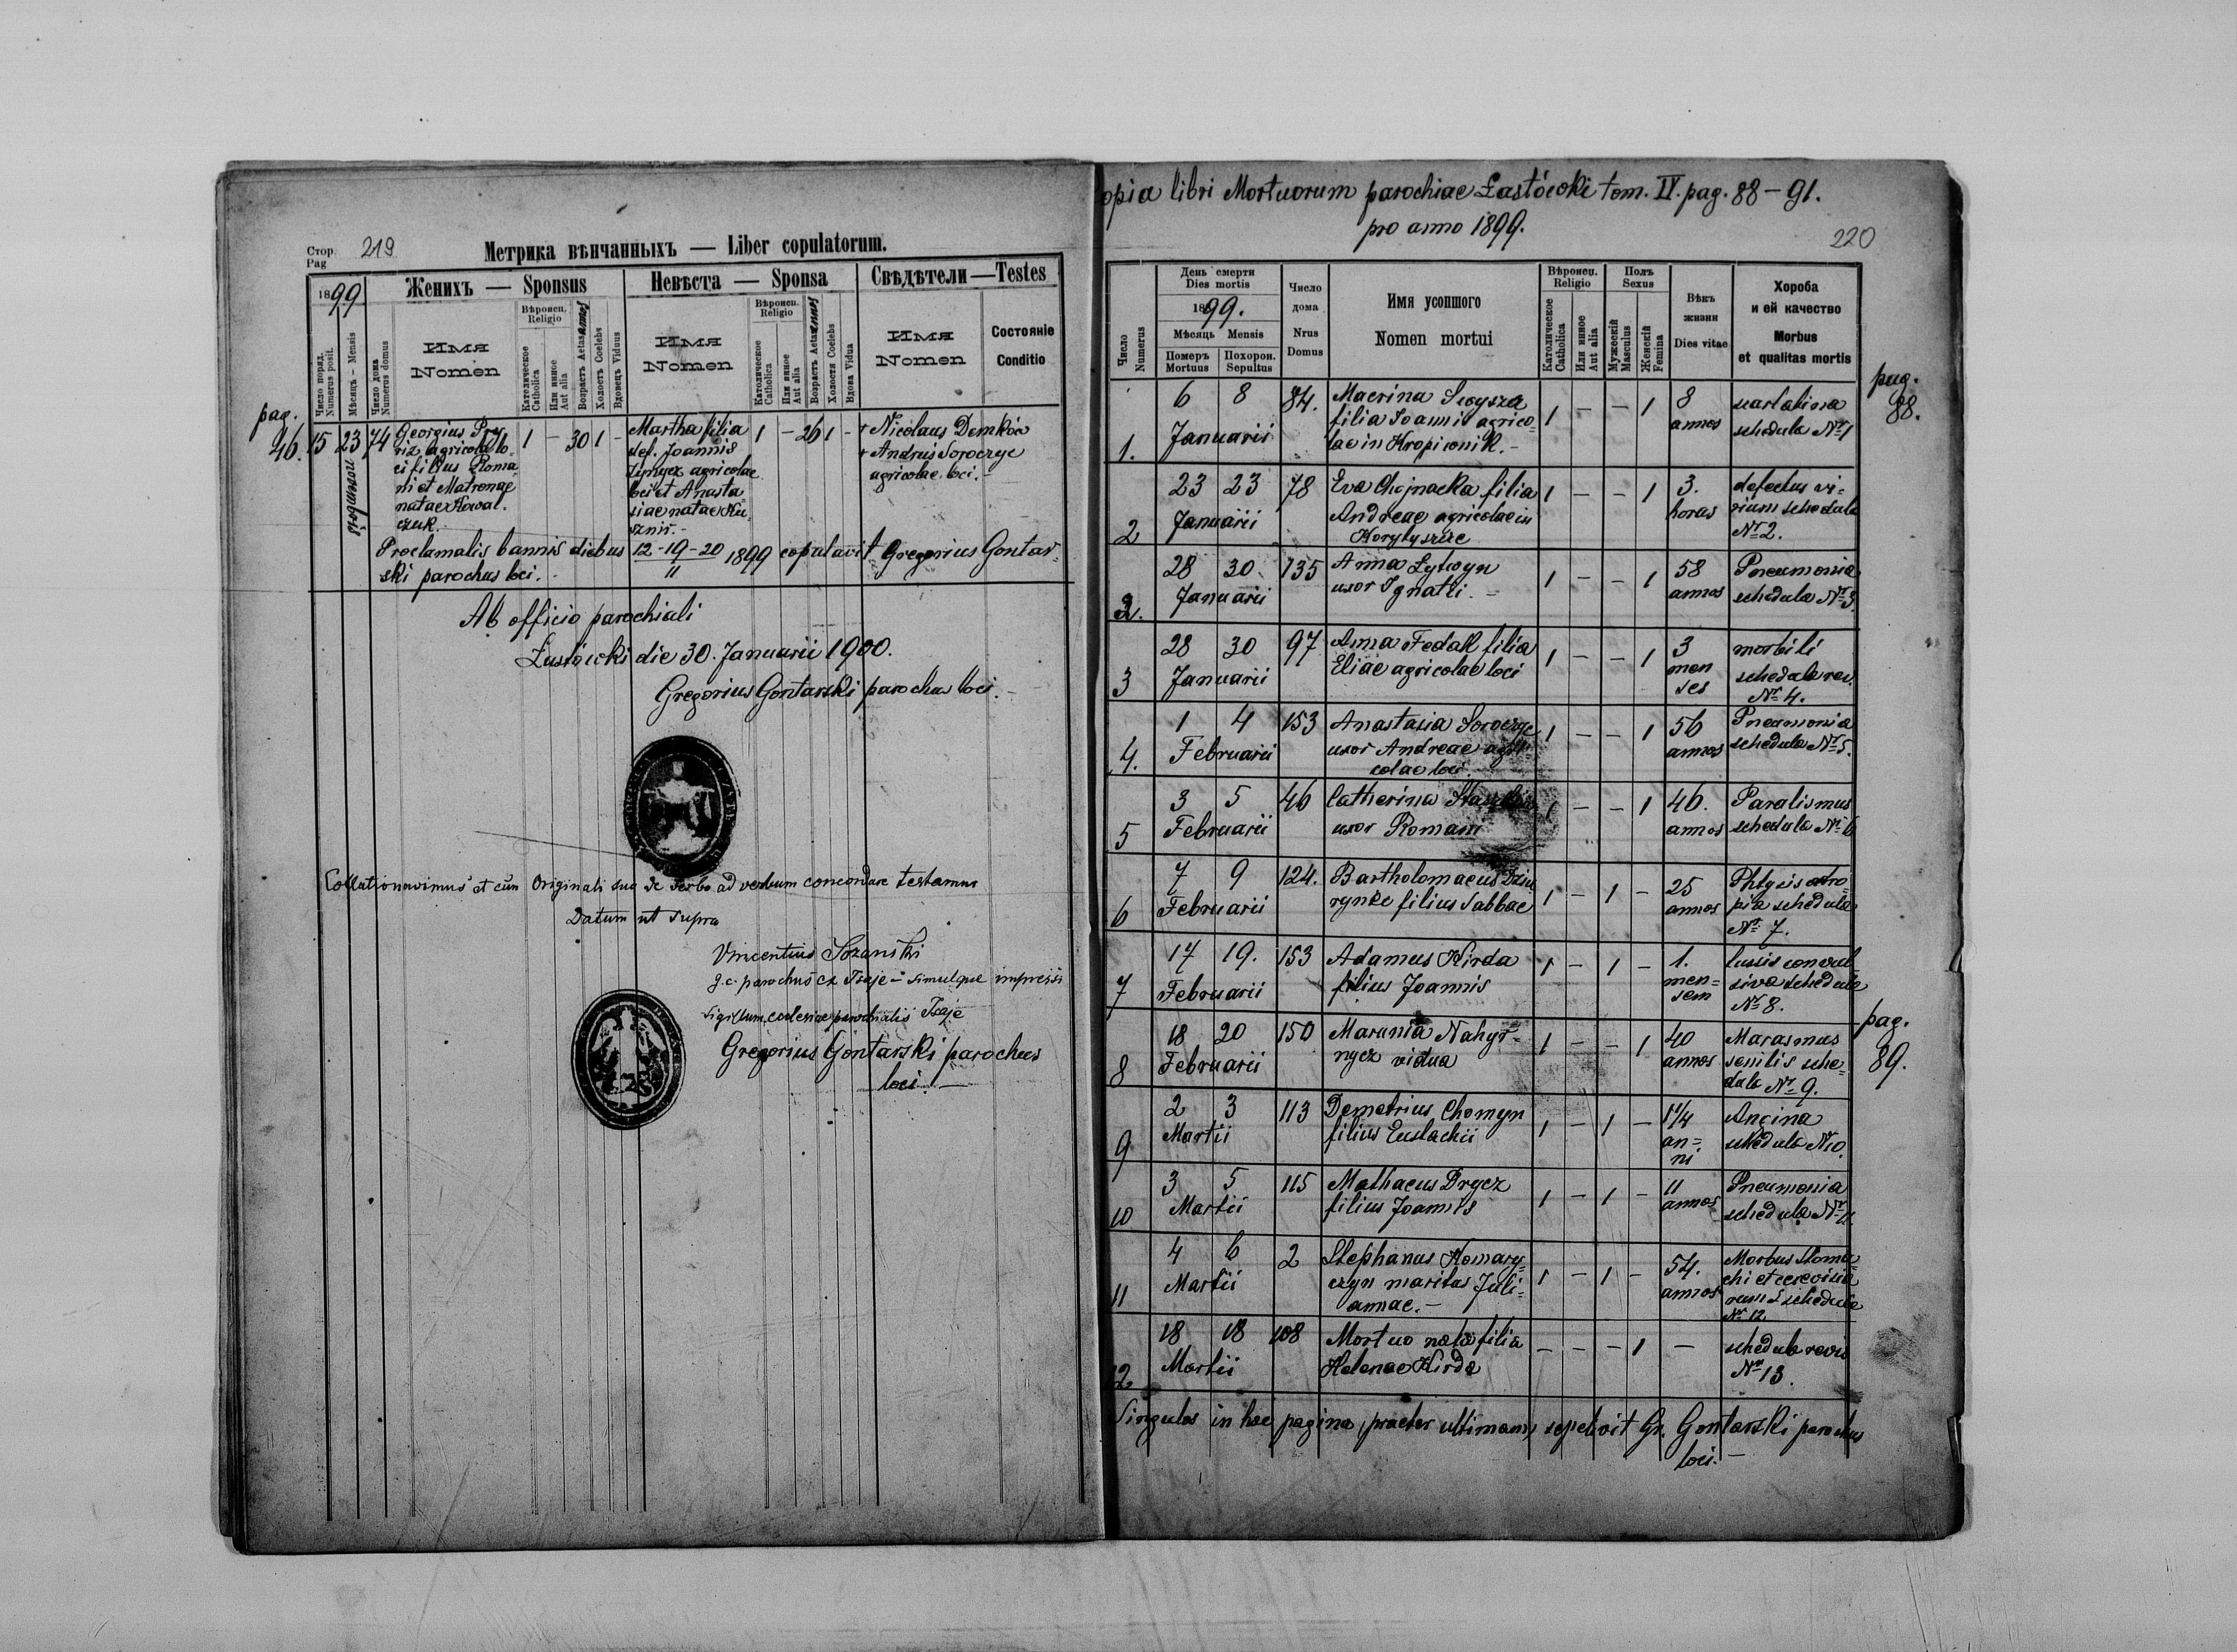 Стор. 219
Pag
Метрика вѣнчанныхъ — Liber copulatorum.
1899
Женихъ — Sponsus
Невѣста — Sponsa
Свѣдѣтели — Testes
Число поряд. Numerus posit.
Мѣсяцъ - Mensis
Число дома Numerus domus
Имя
Nomen
Вѣроисп. Religio
Католическое Catholica
Или инное Aut alia
Возрастъ Aetas annos
Холостъ Coelebs
Вдовецъ Viduus
Имя
Nomen
Вѣроисп. Religio
Католическое Catholica
Или инное Aut alia
Возрастъ Aetas annos
Холостя Coelebs
Вдова Vidua
Имя
Nomen
Состояніе
Conditio
pag.
46. 15 23 74 Georgius
agricola lo-
ci filius Roma
ni et Matronae
natae Kowal.
czuk.
1 — 30 1 —
Martha filia
def. Joannis
agricolae
loci et Anasta-
siae natae Ku-
sznir.-
1 — 26 1 -
+ Nicolaus Demków
+ Andreas Soroczyc
agricolae loci.-
Proclamatis bannis diebus 12-19-20/11 1899 copulavit Gregorius Gontar-
ski parochus loci.
Ab officio parochiali
Łastówki die 30. Januarii 1900.
Gregorius Gontarski parochus loci.-
Collationavimus et cum Originali suo de verbo ad verbum concordare testamur
Datum ut supra
Vincentius Sozański
g.c. parochus ex Isaje - simulque impressi
sigillum ecclesiae parochialis Isaje
Gregorius Gontarski parochus
loci.—
opia libri Mortuorum parochiae Łastówki tom. IV. pag. 88 - 91.
pro anno 1899.
220
Число Numerus
День смерти
Dies mortis
1899.
Мѣсяць Mensis
Померъ Mortuus
Похорон. Sepultus
Число
дома
Nrus
Domus
Имя усопшого
Nomen mortui
Вѣроисп. Religio
Католическое Catholica
Или инное Aut alia
Полъ Sexus
Мужескій Masculus
Женскій Femina
Вѣкъ
жизни
Dies vitae
Хороба
и ей качество
Morbus
et qualitas mortis
pag.
88.
1. 6 8 Januarii 84. Macrina
filia Joannis agrico-
lae in Kropiwnik.-
1 — — 1 8 annos
scarlatina
schedula Nr 1
2 23 23 Januarii 78 Eva Chojnacka filia
Andreae agricolae in
1 — — 1 3. horas
defectus vi-
rium schedula
Nr 2.
28 30 Januarii 135 Anna Lytwyn
uxor Ignatii.-
1 — — 1 58 annos
Pneumonia
schedula Nr 3
3 28 30 Januarii 97 Anna Fedak filia
Eliae agricolae loci
1 — — 1 3 men
ses
morbili
schedula rev.
Nr 4.
4. 1 4 Februarii 153 Anastasia Soroczyc
uxor Andreae agri-
colae loci.
1 — — 1 56 annos
Pneumonia
schedula Nr 5.
5 3 5 Februarii 46 Catherina
uxor Romani
1 — — 1 46. annos
Paralismus
schedula Nr 6
6 7 9 Februarii 124. Bartholomaeus Dziu
rynke filius Sabbae
1 — 1 — 25 annos
schedula
Nr 7.
7 17 19. Februarii 153 Adamus Kirda
filius Joannis
1 — 1 — 1. men=
sem
tussis convul
siva schedula
Nr 8.
pag.
89.
8 18 20 Februarii 150 Marunia Nahyr-
nycz vidua
1 — — 1 40 annos
Marasmus
senilis sche=
dula Nr 9.
9 2 3 Martii 113 Demetrius Chomyn
filius Eustachii
1 — 1 — 1 1/4 an=
ni
Ancina
schedula Nr 10.
10 3 5 Martii 115 Mathaeus Drycz
filius Joannis
1 — 1 — 11 annos
Pneumonia
schedula Nr 11.
11 4 6 Martii 2 Stephanus Komary-
czyn maritus Juli-
annae.-
1 — 1 — 54. annos
Morbus stoma
chi et
schedula
Nr 12
12 18 18 Martii 108 Mortuo nata filia
Helenae Kirda
— — — 1 —
schedula revis
Nr 13.
Singulos in hac pagina, praeter ultimam, sepelivit Gr. Gontarski parochus
loci.—